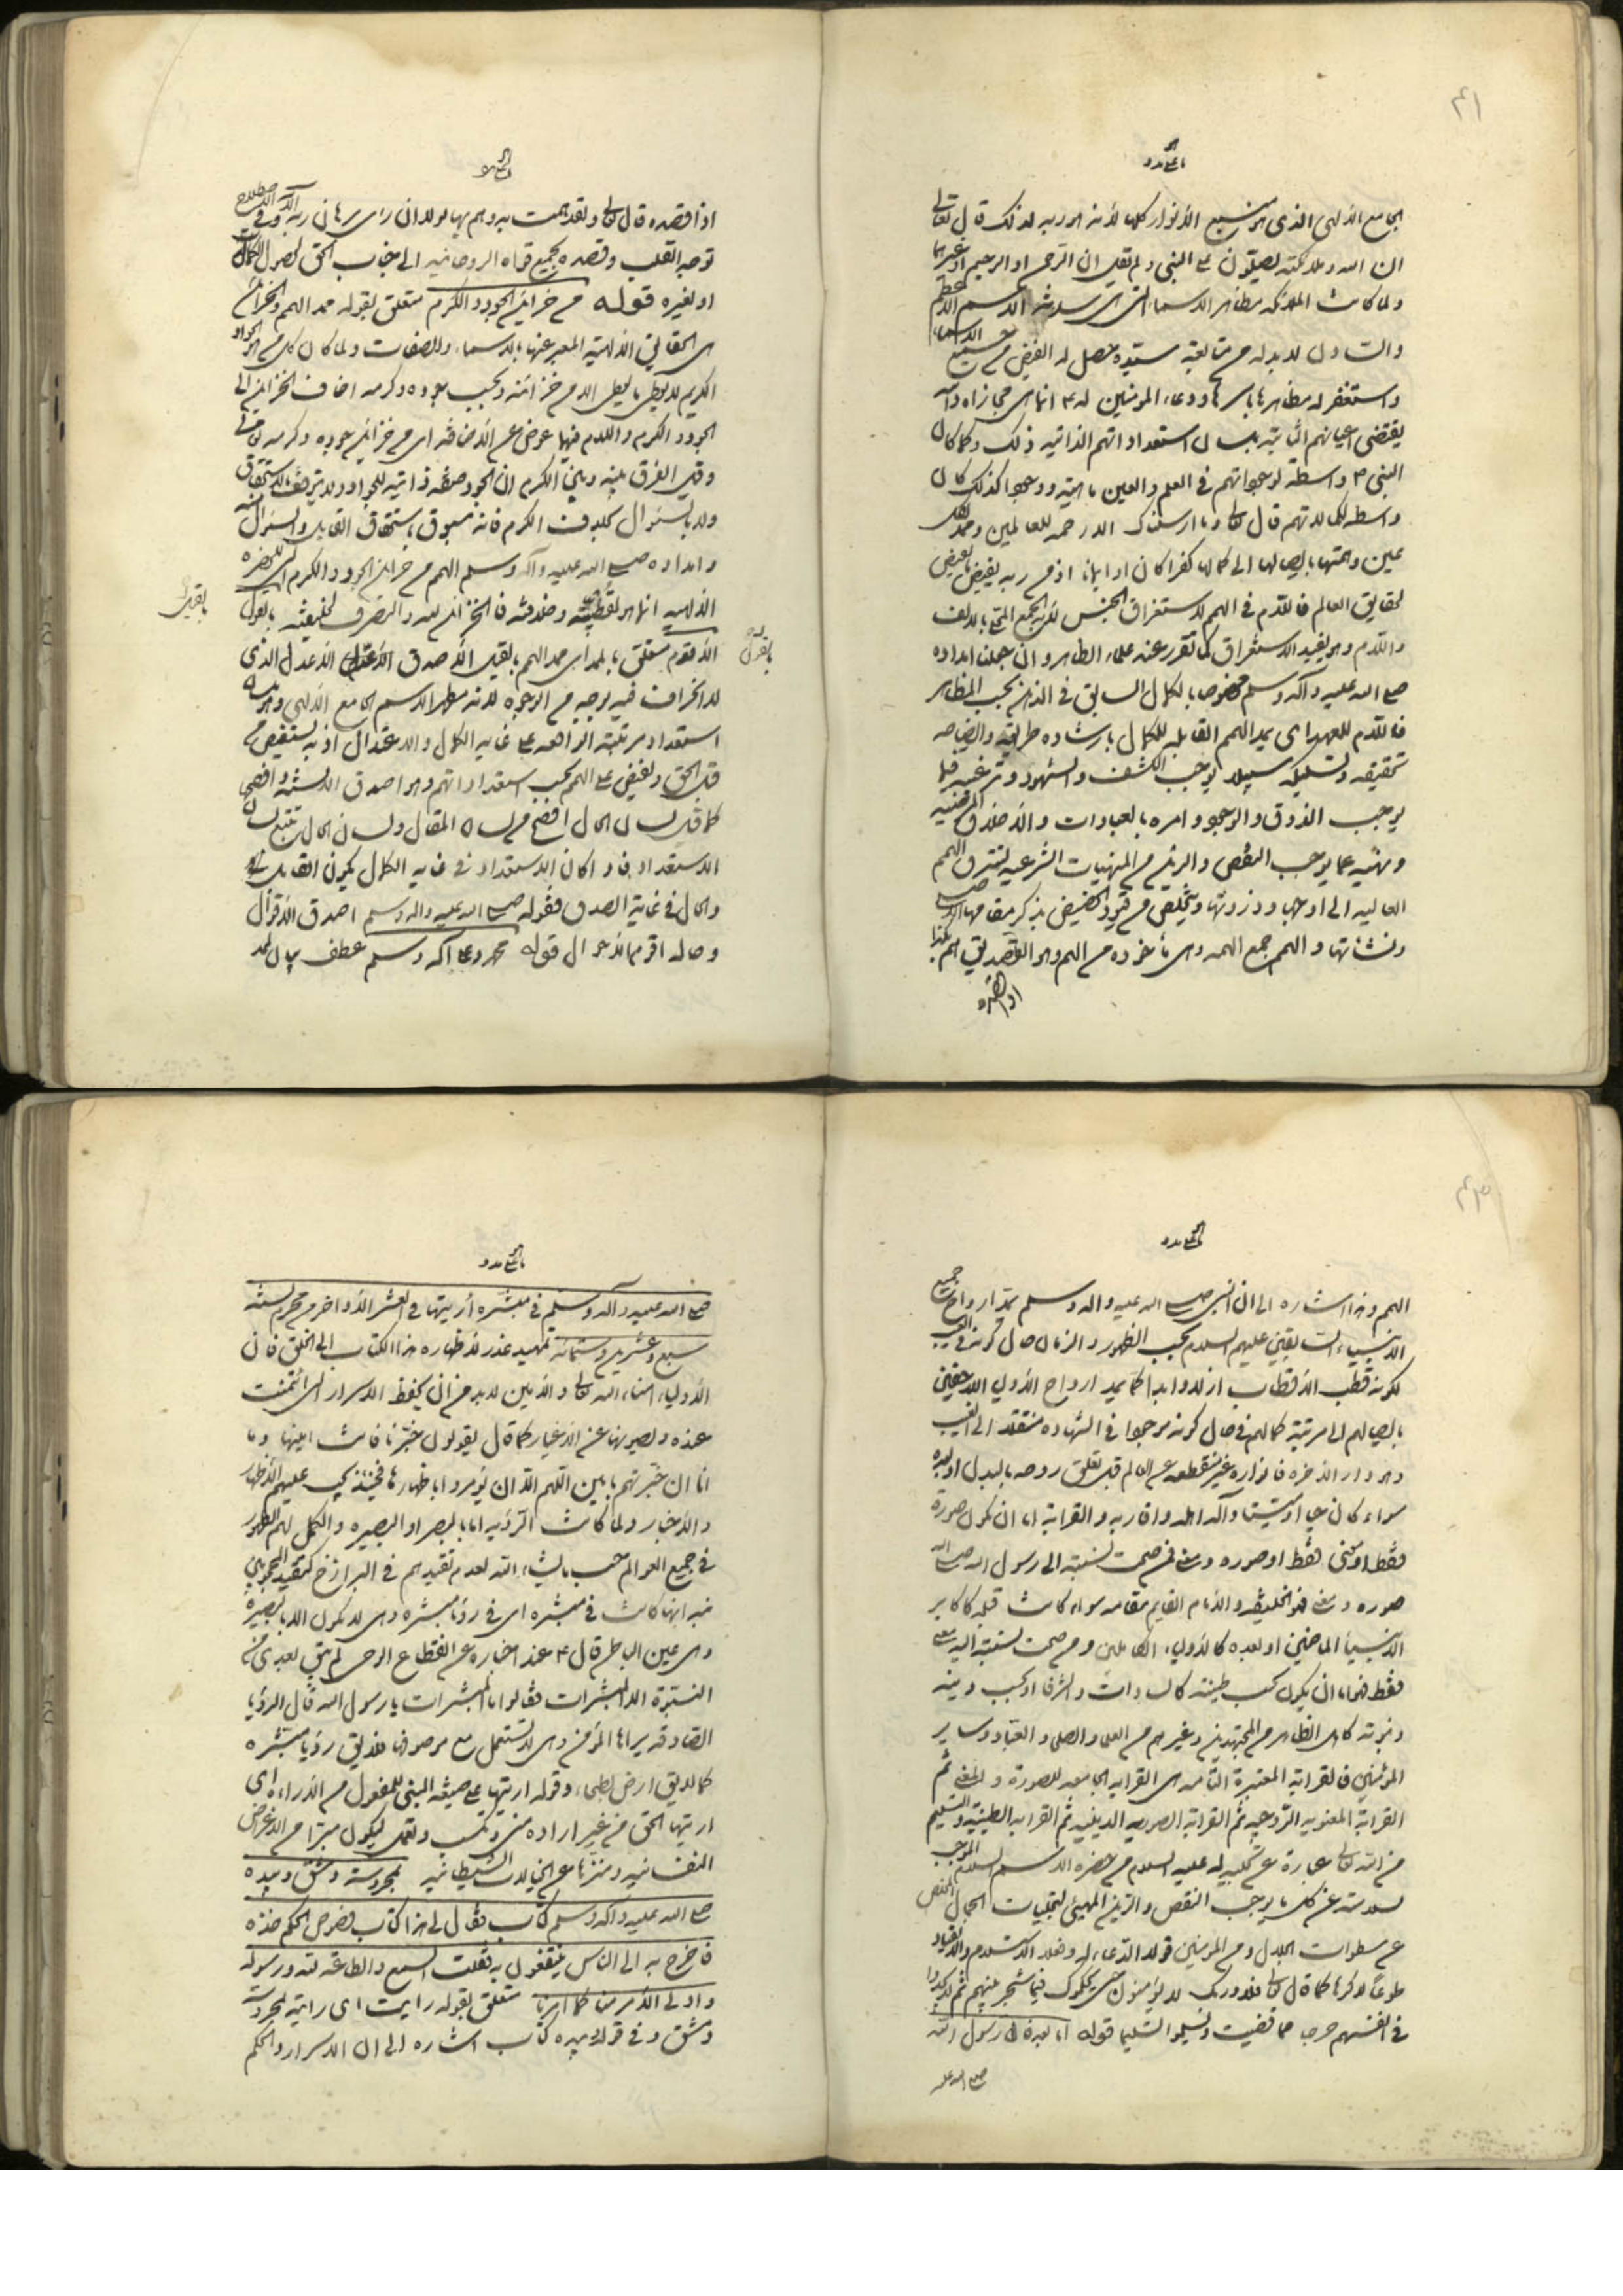 ٤١
الجامع الالهى الذى هو منبع الانوار كلها لانه هو ربه لذلك قال تعالى
ان الله وملائكته يصلون على النبى ولم يقل ان الرحمن او الرحيم او غيرهما
ولما كانت الملائكة مظاهر الاسماء التى هى سدنة الاسم الاعظم
والتادل لا بد له من متابعة سيده حصل له الفيض من جميع الاسماء
واستغفر له مظاهرها باسرها ودعاء المؤمنين له ع انما هى مجازاة
يقتضى اعيانهم الثابتة بلسان استعداداتهم الذاتية ذلك وكما كان
النبى ص واسطة لوجوداتهم فى العلم والعين ماهية ووجودا كذلك كان
واسطة لكمالاتهم قال تعالى وما ارسلناك الا رحمة للعالمين ومدد كل
عين وهمتها بايصالها الى كمالها كفرا كان او ايمانا اذ من ربه يفيض ما يفيض
لحقايق العالم فاللام فى الهمم لاستغراق الجنس لان الجمع المحلى بالالف
واللام وهو يفيد الاستغراق كما تقرر عند علماء الظاهر وان جعلنا امداده
صلى الله عليه وآله وسلم مخصوصا بالكمال السابق فى الذهن بحسب الظاهر
فاللام للعهد اى يمد الهمم القابلة للكمال بارشاده طريقه وايضاحه
تحقيقه وتسليكه سبيلا يوجب الكشف والشهود وترغيبه فيما
يوجب الذوق والوجود وامره بالعبادات والاخلاق المرضية
ونهيه عما يوجب النقص والرين من المنهيات الشرعية ليترقى الهمم
العالية الى اوجها وذروتها وتخلص من قيود الحضيض بذكر مقامها الاصلى
ونشأتها والهمم جمع الهمة وهى مأخوذة من الهم وهو القصد يق هم بكذا
اذا قصده
اذا قصده قال تعالى ولقد همت به وهم بها لولا ان راى برهان ربه وفى الاصطلاح
توجه القلب وقصده بجميع قواه الروحانية الى جناب الحق لحصول الكمال له
او لغيره قوله من خزاين الجود والكرم متعلق بقوله ممد الهمم والخزاين
هى الحقايق الالهية المعبر عنها بالاسماء والصفات ولما كان كل من الجواد
الكريم لا يعطى ما يعطى الا من خزائنه وبحسب جوده وكرمه اضاف الخزاين الى
الجود والكرم واللام فيهما عوض عن الاضافة اى من خزاين جوده وكرمه
وقيل الفرق بينه وبين الكرم ان الجود صفة ذاتية للجواد ولا يتوقف بالاستحقاق
ولا بالسئوال بخلاف الكرم فانه مسبوق باستحقاق القابل والسئوال منه
وامداده صلى الله عليه وآله وسلم الهمم من خزاين الجود والكرم
الالهية انما هو لقطبيته وخلافته فالخزاين لله والتصرف لخليفته بالقول
الاقوم متعلق بالممد اى ممد الهمم بالقيل الاصدق الاعدل الذى
لا انحراف فيه بوجه من الوجوه لانه مظهر الاسم الجامع الالهى وله
استعداد مرتبته الواقعة على غاية الكمال والاعتدال اذ به يستفيض من
قبل الحق ويفيض على الهمم بحسب استعداداتهم وهو اصدق الالسنة وافصحها
كما قيل لسان الحال افصح من لسان المقال ولسان الحال يتبع لسان
الاستعداد فاذا كان الاستعداد فى غاية الكمال يكون القابل له
والحال فى غاية الصدق فقوله صلى الله عليه وآله وسلم اصدق الاقوال
وحاله اقوم الاحوال قوله محمد وعلى آله وسلم عطف بيان للممد
٤٣
الهمم وهذا اشارة الى ان النبى صلى الله عليه وآله وسلم ممد ارواح جميع
الانبياء السابقين عليهم السلام بحسب الظهور والزمان حال كونه فى الغيب
لكونه قطب الاقطاب ازلا وابدا كما يمد ارواح الاولياء اللاحقين
بايصالهم الى مرتبة كمالهم فى حال كونه موجودا فى الشهادة منتقلا الى الغيب
وهو دار الآخرة فانواره غير منقطعة عن العالم قبل تعلق روحه بالبدل او بعده
سواء كان حيا او ميتا وآله اهله واقاربه والقرابة اما ان تكون صورة
فقط او معنى فقط او صورة ومعنى فمن صحت نسبته الى رسول الله صلى الله
صورة ومعنى فهو الخليفة والامام القايم مقامه سواء كانت قبله كاكابر
الانبياء الماضين او بعده كالاولياء الكاملين ومن صحت نسبته اليه معنى
فقط فاما ان يكون بحسب طينته كالسادات والشرفا او بحسب دينه
ونبوته كاهل الظاهر من المجتهدين وغيرهم من العلما والصلحا والعباد وساير
المؤمنين فالقرابة المعتبرة التامة هى القرابة الجامعة للصورة والمعنى ثم
القرابة المعنوية الروحية ثم القرابة الصورية الدينية ثم القرابة الطينية والتسليم
من الله تعالى عبارة عن تجليه له عليه السلام من حضرة الاسم السلام الموجب
لسلامته عن كل ما يوجب النقص والرين المهيئ لتجليات الجمال المخلص
عن سطوات الجلال ومن المؤمنين قولا الدعاء له وفعلا الاستسلام والانقياد
طوعا لا كرها كما قال تعالى فلا وربك لا يؤمنون حتى يحكموك فيما شجر بينهم ثم لا يجدوا
فى انفسهم حرجا مما قضيت ويسلموا تسليما قوله اما بعد فانى رايت رسول الله
صلى الله عليه
صلى الله عليه وآله وسلم فى مبشرة أريتها فى العشر الأواخر من محرم لسنة
سبع وعشرين وستمائة تمهيد عذر لاظهاره هذا الكتاب الى الخلق فان
الاولياء امناء الله تعالى والامين لا بد من ان يحفظ الاسرار التى ائتمنت
عنده ولصونها عن الاغيار كما قال يقولون خبرنا فانت امينها وما
انا ان خبرتهم بامين اللهم الا ان يؤمروا باظهارها فحينئذ يجب عليهم الاظهار
والاخبار ولما كانت الرؤية اما بالبصر او البصيرة والكمل لهم الظهور
فى جميع العوالم حسب ما يشاء الله لعدم تقيدهم فى البرازخ كتقيد المحجوبين
نبه انها كانت فى مبشرة اى فى رؤيا مبشرة وهى لا تكون الا بالبصيرة
وهى عين الباطن قال ع عند اخباره عن انقطاع الوحى لم يبق بعدى من
النبوة الا المبشرات فقالوا ما المبشرات يا رسول الله قال الرؤيا
الصادقة يراها المؤمن وهى لا تستعمل مع موصوفها فلا يق رؤيا مبشرة
كما لا يق ارض بطحاء وقوله اريتها على صيغة المبنى للمفعول من الاراءة اى
اريتها الحق من غير ارادة منى وكسب وتعمل ليكون مبرا من الاغراض
النفسانية ومنزها عن الخيالات الشيطانية بمحروسة دمشق وبيده
صلى الله عليه وآله وسلم كتاب فقال لى هذا كتاب فصوص الحكم خذه
فاخرج به الى الناس ينتفعون به فقلت السمع والطاعة لله ورسوله
واولى الامر منا كما امرنا متعلق بقوله رايت اى رايته بمحروسة
دمشق وفى قوله وبيده كتاب اشارة الى ان الاسرار والحكم